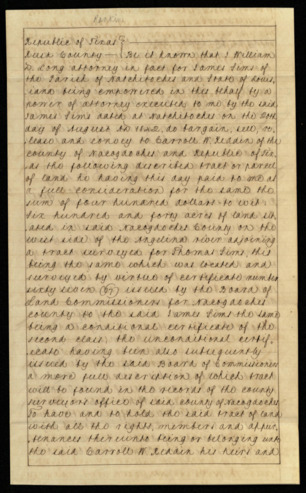 Republic of Texas
Rusk County Be it known that I William
G. Long attorney in fact for James Sims of
the Parish of Natchitoches and State of Louis,
iana being empowered in this behalf by a
power of attorney executed to me by the said
James Sims dated at Natchitoches on the
day of August do bargain, sell, re,
lease and convey to Carroll W. of the
county of Nacogdoches and Republic afsd.,
as the following described tract or parcel
of land he having this day paid to me as
a full consideration for the same the
sum of four hundred dollars to wit
Six hundred and forty acres of land sit,
uated in said Nacogdoches County on the
west side of the Angelina river adjoining
a tract surveyed for Thomas Sims, this
being the same which was located and
surveyed by virtue of certificate number
sixty seven (67) issued by the Board of
Land Commissioners for Nacogdoches
county to the said James Sims the same
being a conditional certificate of the
second class, the unconditional certif,
icate having been also subsequently
issued by the said Board of Commissioners
a more full description of which tract
will be found in the records of the county
surveyors office of said county of Nacogdoches
To have and to hold the said tract of land
with all the rights, members and appur,
tenances thereunto being or belonging unto
the said Carroll W. his heirs and